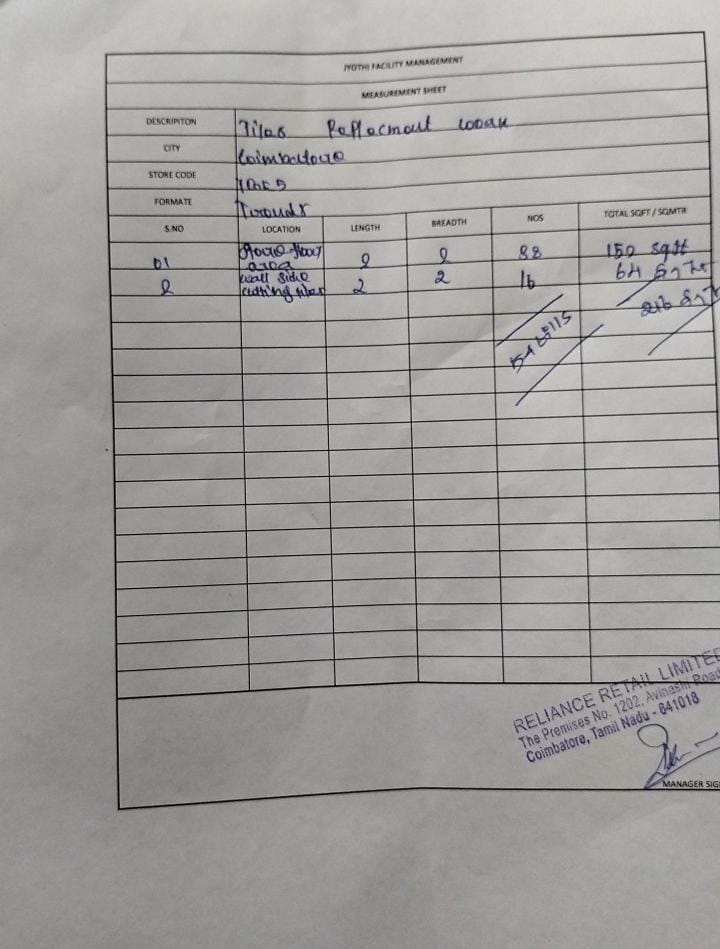 JYOTHI FACILITY MANAGEMENT
MEASUREMENT SHEET
DESCRIPITON Tiles
CITY Coimbatore
STORE CODE
FORMATE Trends
S.NO LOCATION LENGTH BREADTH NOS TOTAL SQFT / SQMTR
01 floor area 2 2 38 152 sqft
2 wall side cutting tiles 2 2 16 64
216
RELIANCE RETAIL LIMITED
The Premises No. 1202, Avinashi Road
Coimbatore, Tamil Nadu - 641018
MANAGER SIG